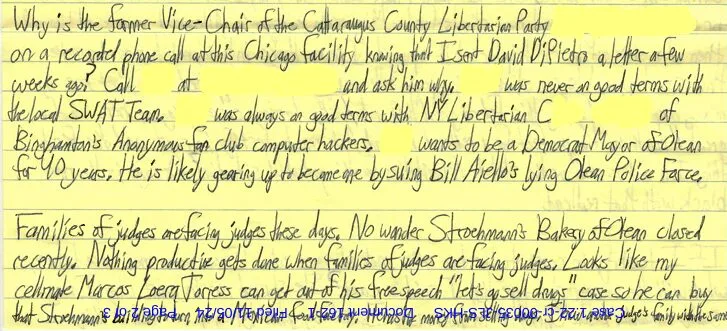 Why is the former Vice-Chair of the Cattaraugus County Libertarian Party
on a recorded phone call at this Chicago facility knowing that I sent David DiPietro a letter a few
weeks ago? Call at and ask him why. was never on good terms with
the local SWAT Team. was always on good terms with NY Libertarian C of
Binghamton's Anonymous fan club computer hackers. wants to be a Democrat Mayor of Olean
for 40 years. He is likely gearing up to become one by suing Bill Aiello's lying Olean Police Force.
Families of judges are facing judges these days. No wonder Stroehmann's Bakery of Olean closed
recently. Nothing productive gets done when families of judges are facing judges. Looks like my
cellmate Marcos Loera Torress can get out of his free speech "let's go sell drugs" case so he can buy
that Stroehmann's building turn into a Mexican food factory. judge's family with the same
Case 1:22-cr-00035-JLS-HKS Document 162-1 Filed 11/05/24 Page 2 of 3